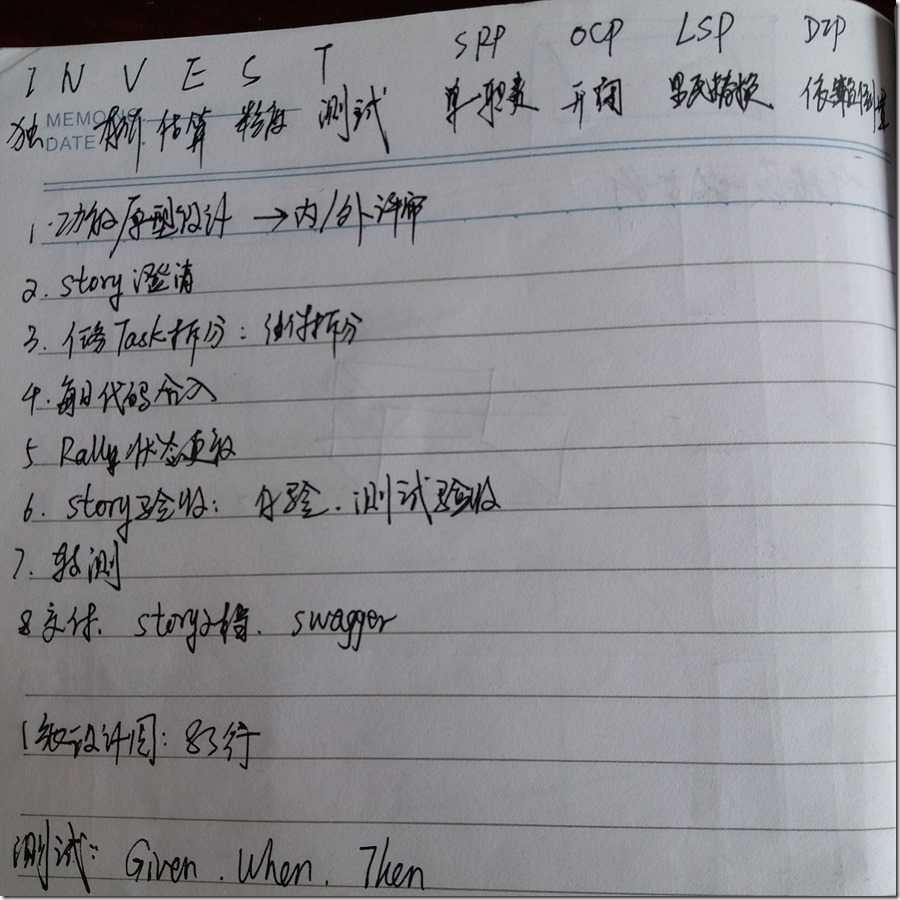 I N V E S T SRP OCP LSP DIP
独 价 估算 粒度 测试 单一职责 开闭 里氏替换 依赖倒置
MEMO
DATE
1. 功能/原型设计 → 内/外评审
2. story 澄清
3. 任务Task拆分: 拆分
4. 每日代码合入
5 Rally 状态更新
6. story验收: 体验. 测试验收
7. 转测
8 交付. story文档. swagger
1 设计图: 83行
测试: Given. When. Then